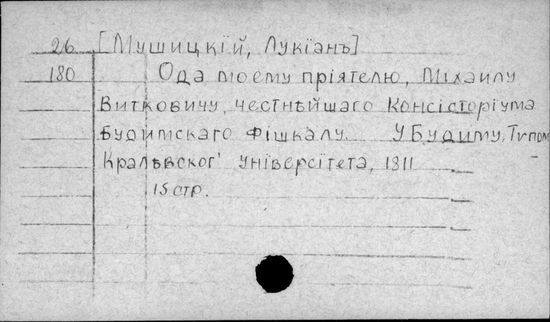 26 [Мушицкїй, Лукїанъ]
180 Ода моему прїятелю, Мїхаилу
Витковичу, честнѣйшаго Консїсторїума
Будимскаго Фїшкалу. У Будиму, Тѵпом
Кралѣвског' Унїверсїтета, 1811
15 стр.